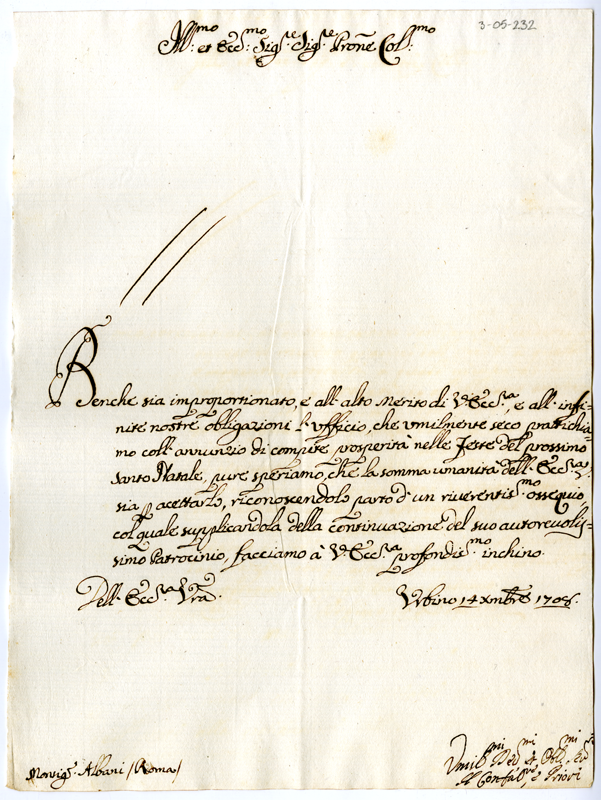 3-05-232
Ill:mo et Ecc:mo Sig.e Sig.e Prone Col:mo
Benche sia improportionato, e all' alto Merito di V. Ecc.za, e all' infi-
nite nostre obligazioni l' Vfficio, che vmilmente seco prattichia-
mo coll' annunzio di compite prosperità nelle Feste del prossimo
santo Natale, pure speriamo, che la somma vmanità dell' Ecc.za V.
sia p acettarlo, riconoscendolo parto d' un riverentis.mo ossequio,
col quale supplicandola della continuazione del suo autorevolis-
simo Patrocinio, facciamo à V. Ecc.za profondis.mo inchino.
Dell' Ecc.za Vra.
Vrbino 14 Xmbre
Monsig.r Albani (Roma)
Vmil.mi Deu.mi et Obl.mi
Il Confal.re e Priori